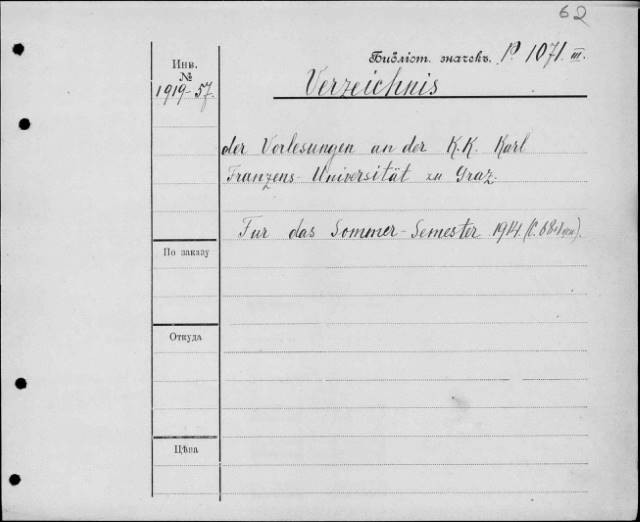 62
Библіот. значекъ. P. 1071. III.
Инв.
№
1919-57.
Verzeichnis
der Vorlesungen an der K.K. Karl
Franzens-Universität zu Graz.
Für das Sommer-Semester 1914.
По заказу
Откуда
Цѣна